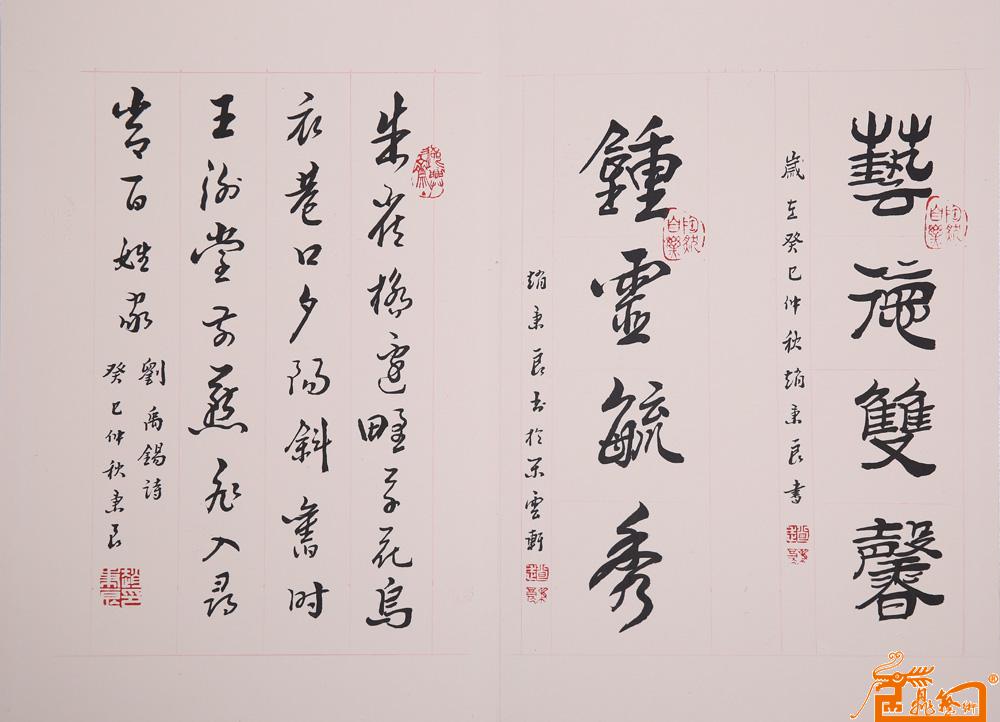 藝苑雙馨
歲在癸巳仲秋趙秉良書
鍾靈毓秀
趙秉良書於 雲軒
朱雀橋邊野草花烏
衣巷口夕陽斜舊時
王謝堂前燕飛入尋
常百姓家
劉禹錫詩
癸巳仲秋秉良